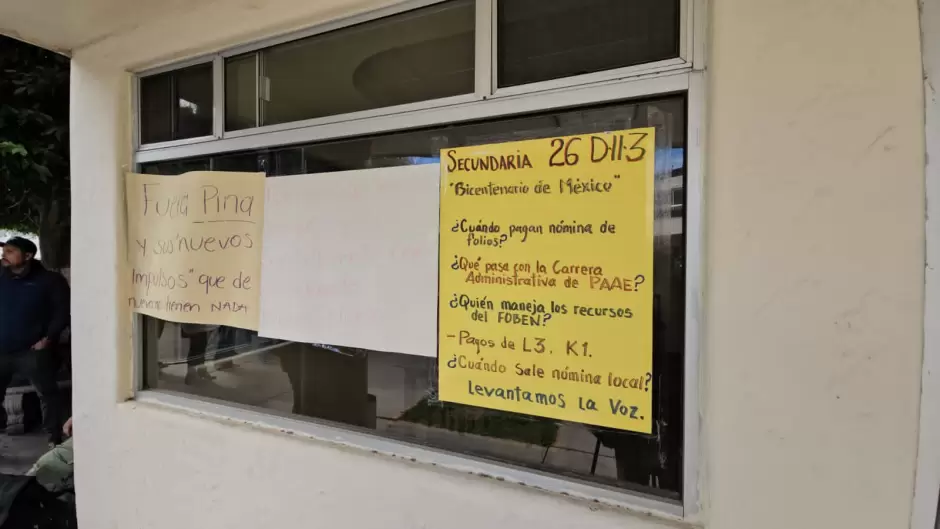 Fuera Pina
y sus "nuevos
Impulsos" que de
nuevo tienen NADA
SECUNDARIA 26 D-II-3
"Bicentenario de México"
¿Cuándo pagan nómina de
folios?
¿Qué pasa con la Carrera
Administrativa de PAAE?
¿Quién maneja los recursos
del FOBEN?
- Pagos de L3, K1.
¿Cuándo sale nómina local?
Levantamos la Voz.